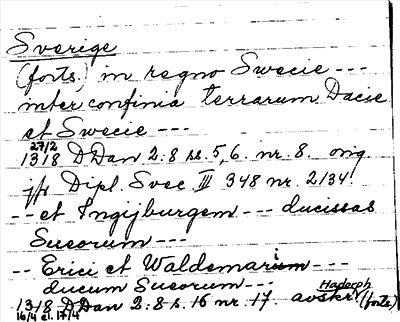 Sverige
(forts.) in regno Swecie ---
inter confinia terrarum Dacie
et Swecie ---
27/2
1318 DDan 2:8 ss. 5,6. nr. 8. orig.
jfr Dipl. Svec. III 348 nr. 2134.
-- et Ingijburgem --- ducissas
Sueorum ---
-- Erici et Waldemarium ---
ducum Sueorum ---
1318 DDan 2:8 s. 16 nr. 17. avskr. Hadorph (forts)
16/4 el. 17/4